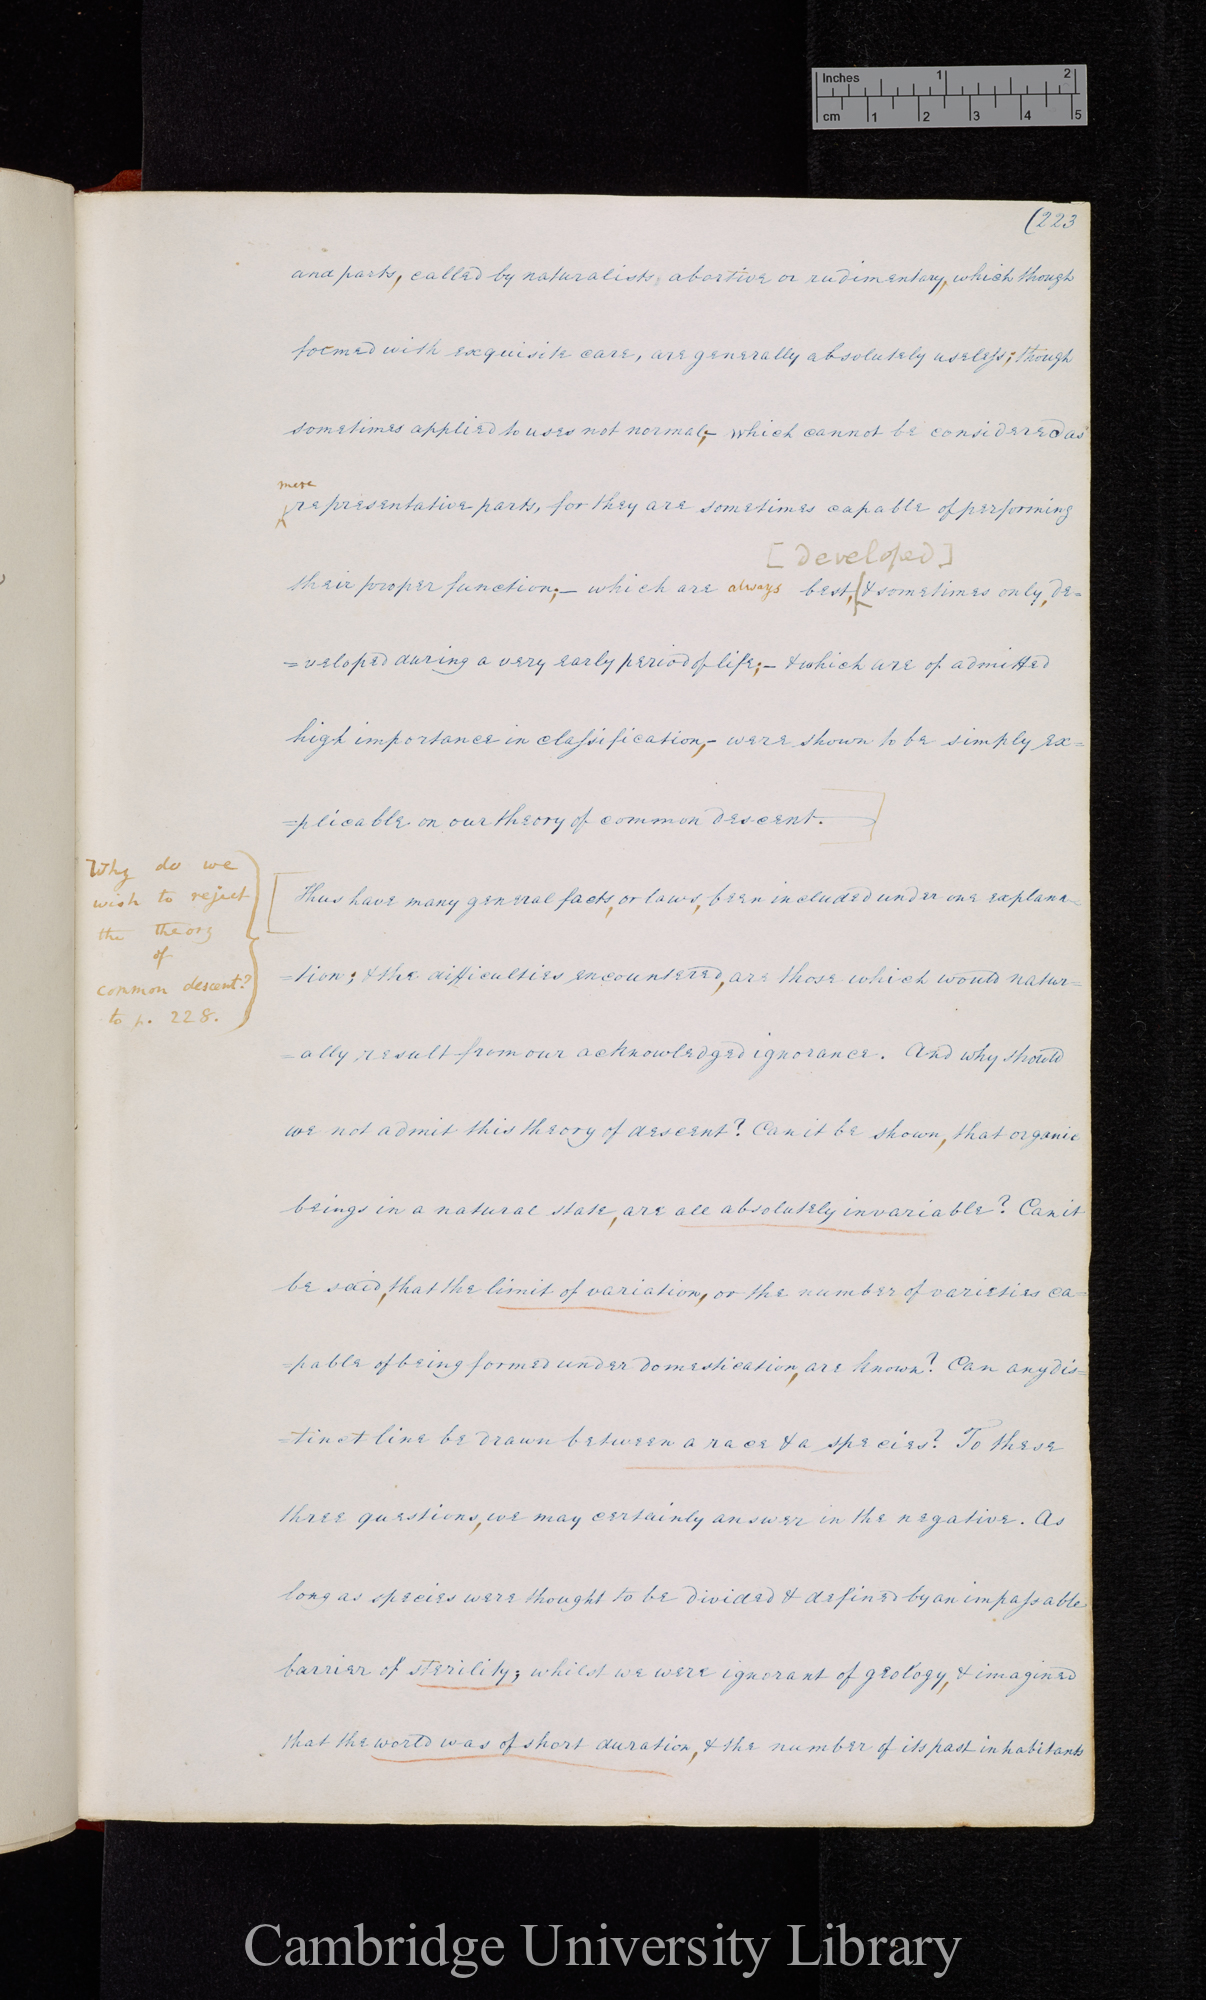 Inches 1 2
cm 1 2 3 4 5
(223
and parts, called by naturalists, abortive or rudimentary, which though
formed with exquisite care, are generally absolutely useless; though
sometimes applied to uses not normal;— which cannot be considered as
mere
representative parts, for they are sometimes capable of performing
[developed]
their proper function;— which are always best, & sometimes only, de=
=veloped during a very early period of life;— & which are of admitted
high importance in classification,— were shown to be simply ex=
=plicable on our theory of common descent.
Why do we
wish to reject
the theory
of
common descent?
to p. 228.
Thus have many general facts, or laws, been included under one explana=
=tion; & the difficulties encountered, are those which would natur=
=ally, result from our acknowledged ignorance. And why should
we not admit this theory of descent? Can it be shown, that organic
beings in a natural state, are all absolutely invariable? Can it
be said, that the limit of variation, or the number of varieties ca=
=pable of being formed under domestication, are known? Can any dis=
=tinct line be drawn between a race & a species? To these
three questions, we may certainly answer in the negative. As
long as species were thought to be divided & defined by an impassable
barrier of sterility; whilst we were ignorant of geology, & imagined
that the world was of short duration, & the number of its past inhabitants
Cambridge University Library